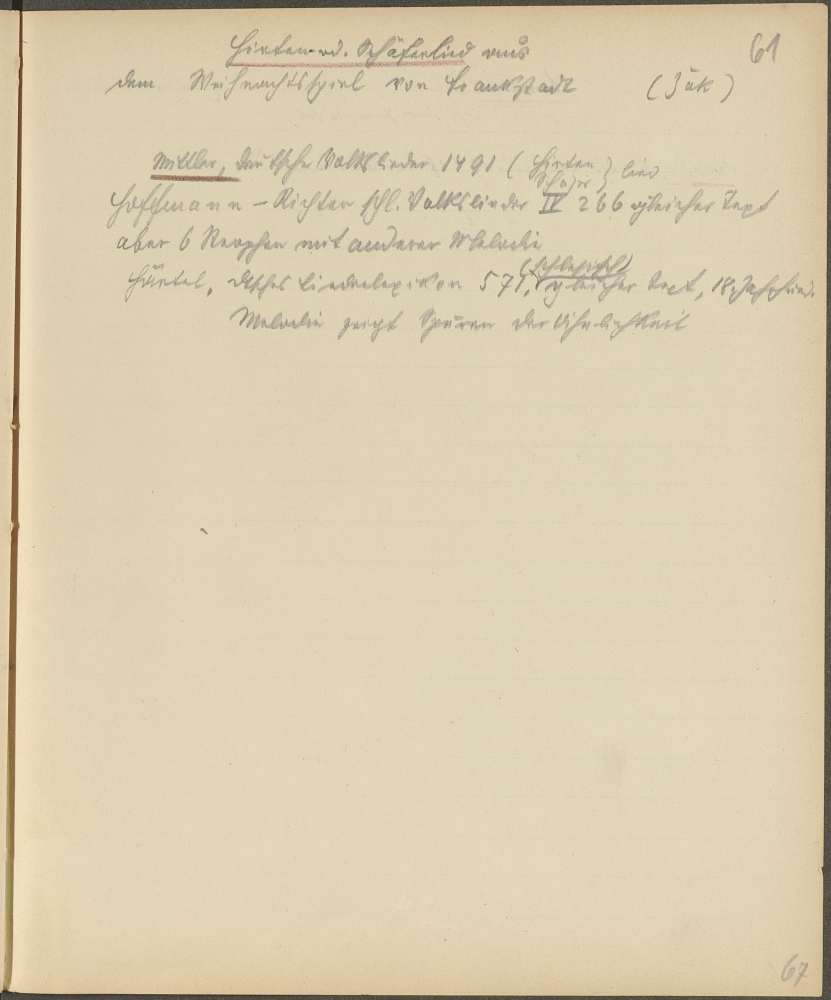 61
Hirten- od. Schäferlied aus
dem Weihnachtsspiel von Frankstadt (Zuk)
Mittler, Deutsche Volkslieder 1491 (Hirten
Schäfer) lied
Hoffmann – Richter schl. Volkslieder IV 266 gleicher Text
aber 6 Strophen mit anderer Melodie
(schlesisch)
Härtel, dtsches Liederlexikon 571, gleicher Text, 18.
Melodie zeigt Spuren der Ähnlichkeit
67